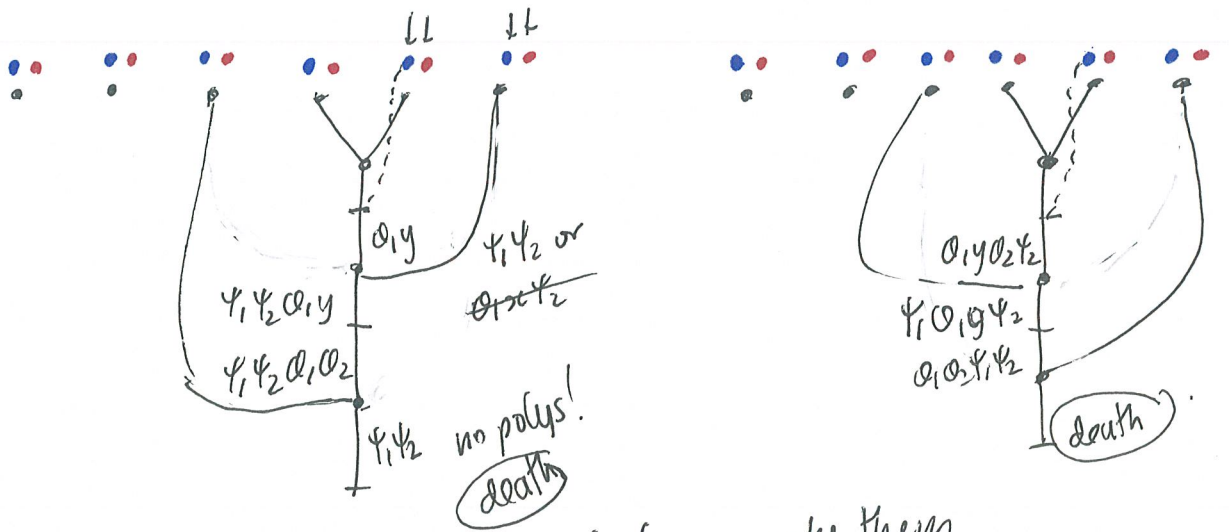 ↓↓ ↓↓
θ₁y
ψ₁ψ₂ or
θ₁xψ₂
ψ₁ψ₂θ₁y
ψ₁ψ₂θ₁θ₂
ψ₁ψ₂ no polys!
death
θ₁yθ₂ψ₂
ψ₁θ₁yψ₂
θ₁θ₂ψ₁ψ₂
death
them